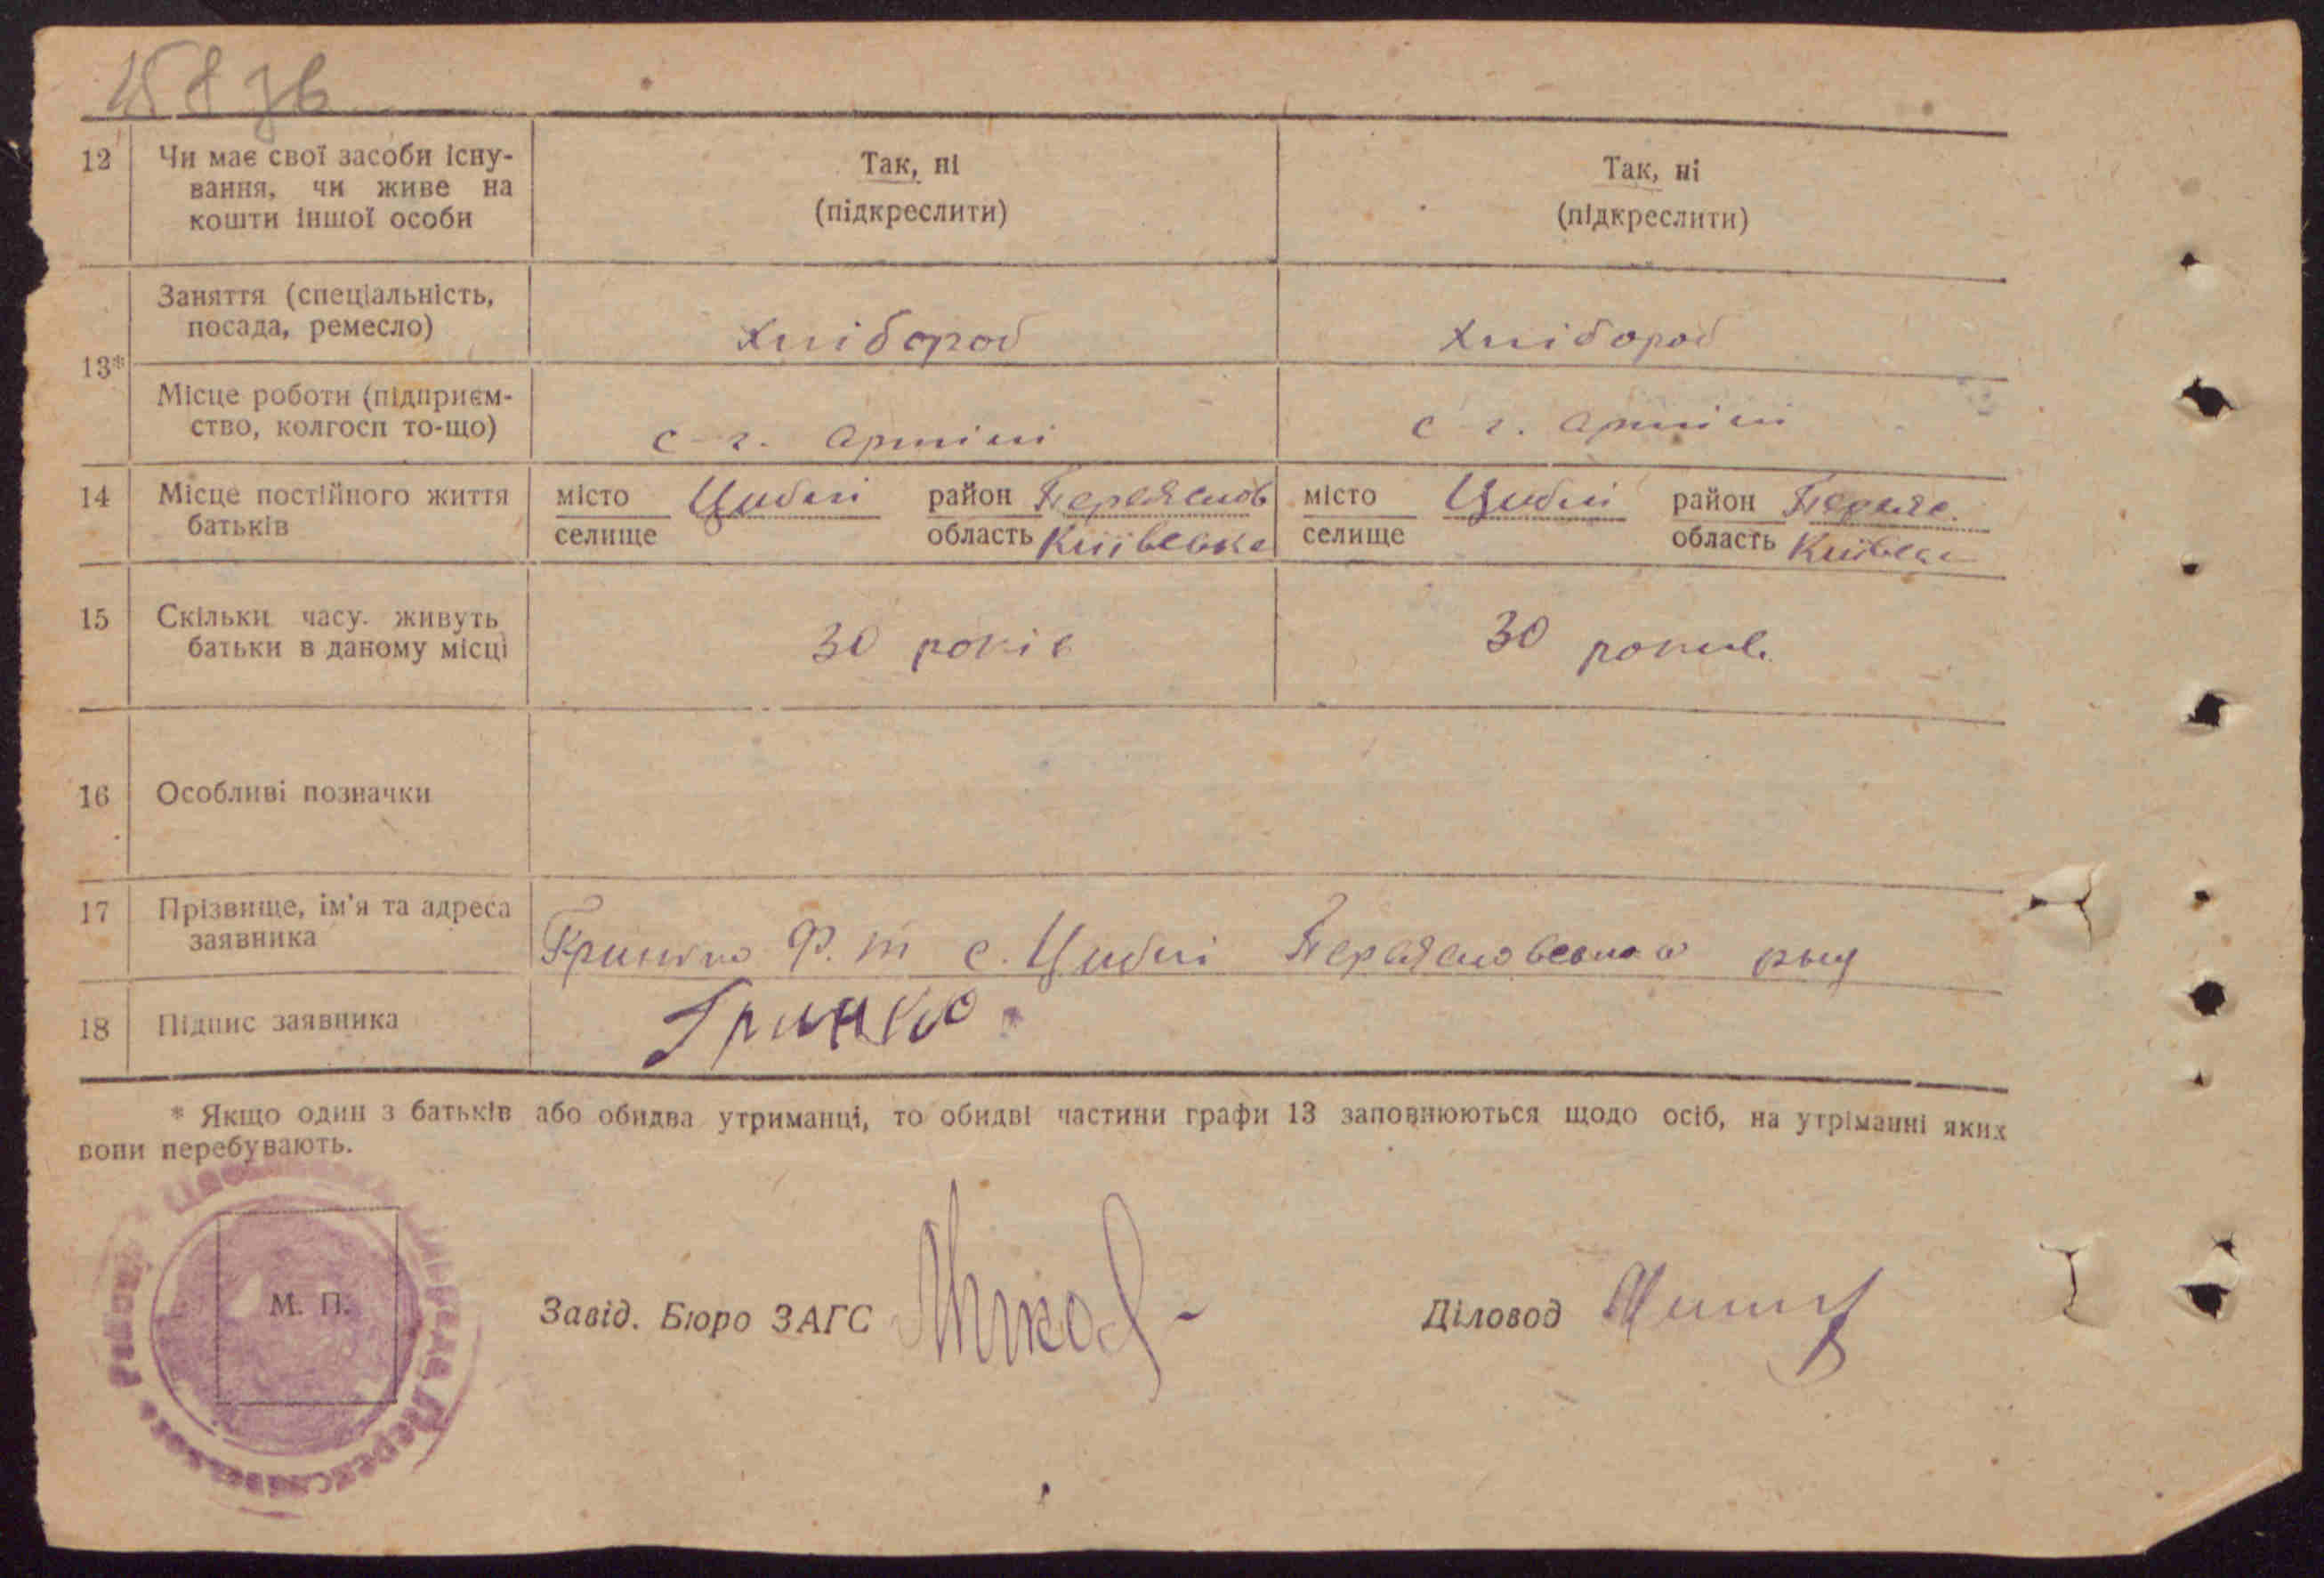 158 зв
12 Чи має свої засоби існу- Так, ні Так, ні
вання, чи живе на (підкреслити) (підкреслити)
кошти іншої особи
Заняття (спеціальність,
посада, ремесло) Хлібороб Хлібороб
13*
Місце роботи (підприєм-
ство, колгосп то-що) с-г. артілі с г. артілі
14 Місце постійного життя місто Циблі район Переяслов місто Циблі район Переяс.
батьків селище область Київська селище область
15 Скільки часу. живуть 30 років 30 роков.
батьки в даному місці
16 Особливі позначки
17 Прізвище, ім'я та адреса
заявника Гринько Ф. т с. Циблі
18 Підпис заявника Гринько
* Якщо один з батьків або обидва утриманці, то обидві частини графи 13 заповнюються щодо осіб, на утріманні яких
вони перебувають.
М. П.
Завід. Бюро ЗАГС Діловод